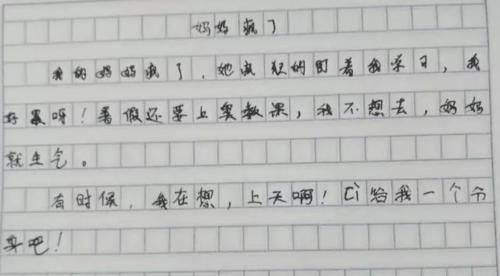 妈妈疯了
我的妈妈疯了，她疯狂的盯着我学习，我
好累呀！暑假还要上奥数课，我不想去，妈妈
就生气。
有时候，我在想，上天啊！ci给我一个
吧！